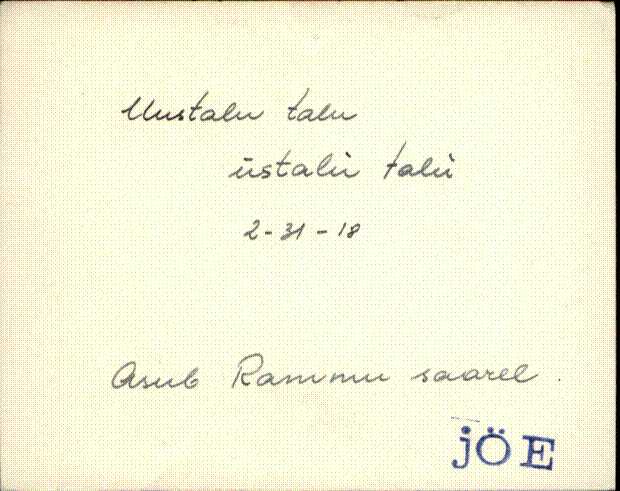 Uustalu talu
üstalu̇ talu̇
2-31-18
Asub Rammu saarel.
jÖE